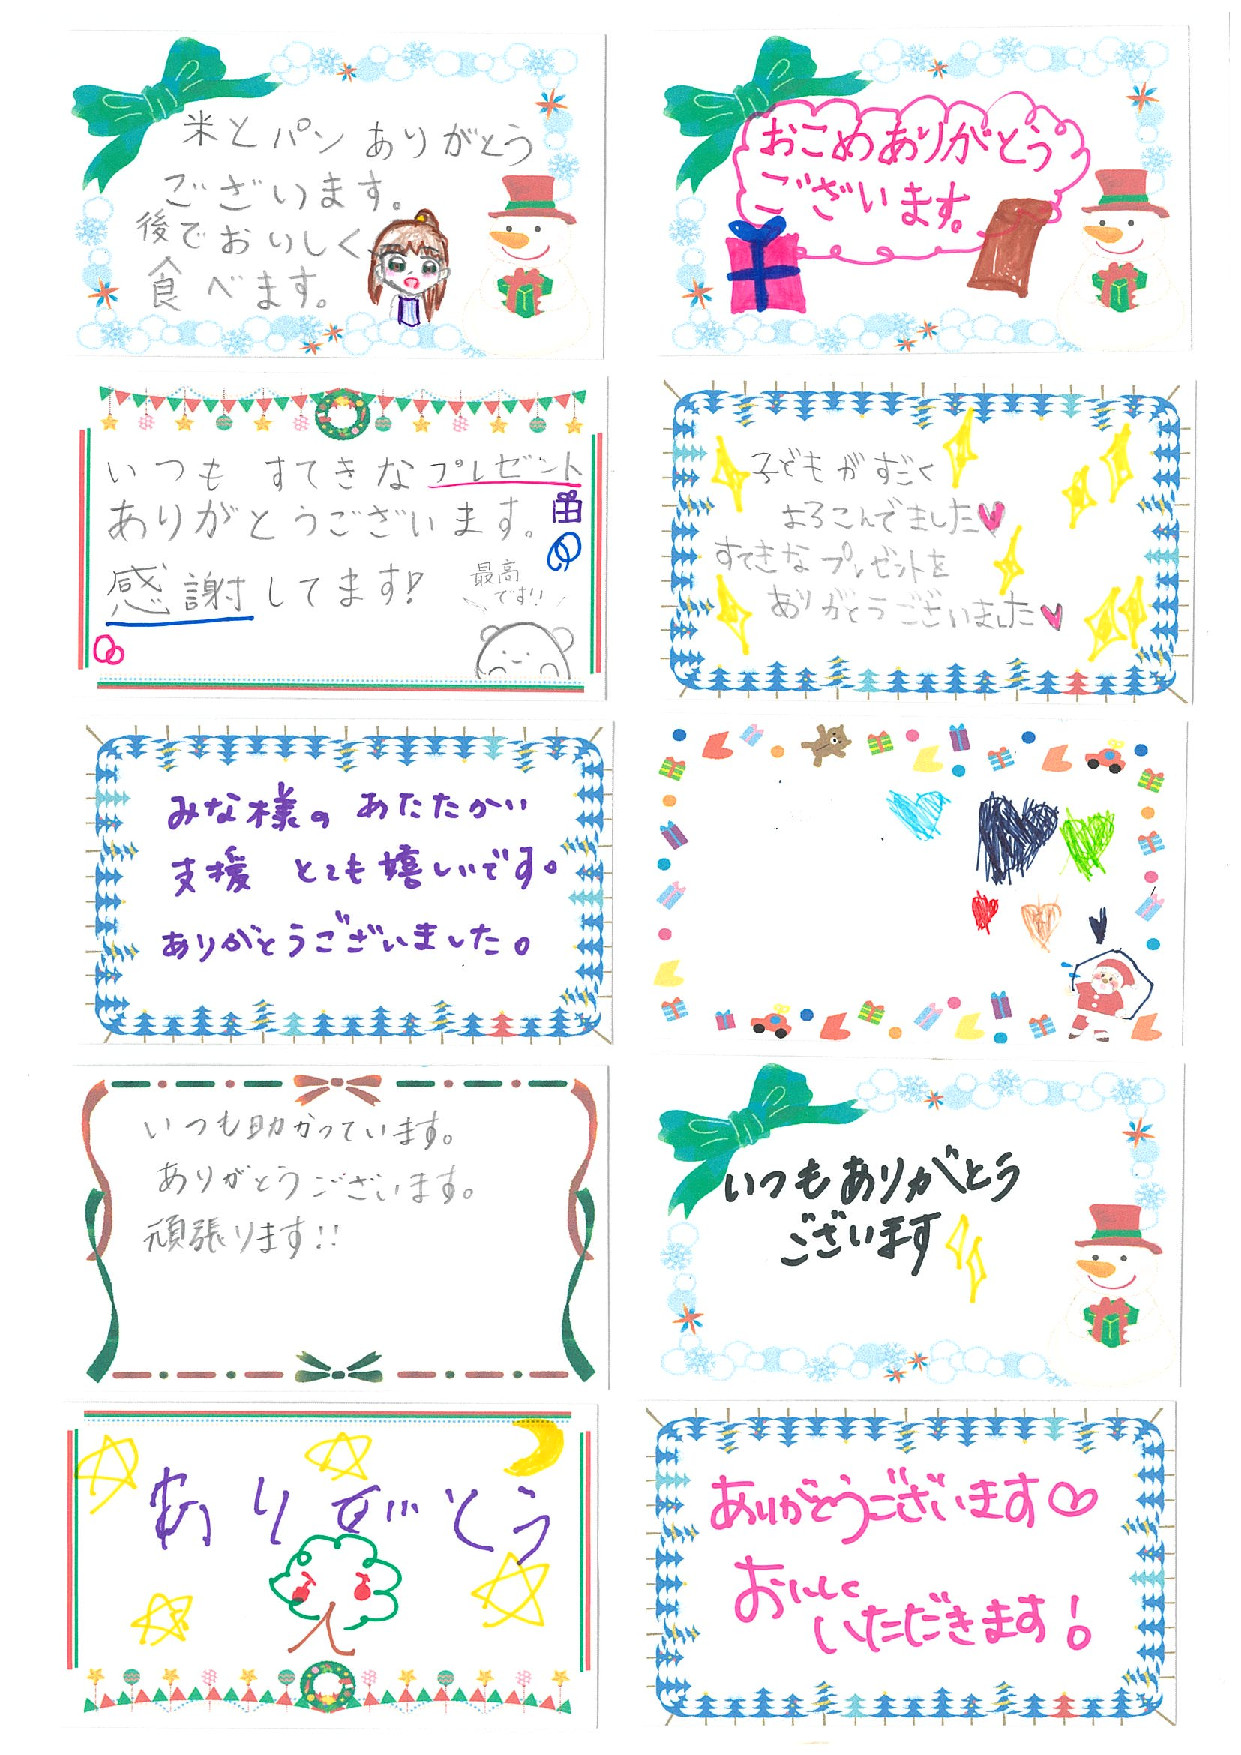 米とパンありがとう
ございます。
後でおいしく
食べます。
おこめありがとう
ございます。
いつも すてきなプレゼント
ありがとうございます。
感謝してます!
最高
です!!
子どもがすごく
よろこんでました
すてきなプレゼントを
ありがとうございました
みな様の あたたかい
支援 とても嬉しいです。
ありがとうございました。
いつも助かっています。
ありがとうございます。
頑張ります!!
いつもありがとう
ございます
ありがとう
ありがとうございます♡
おいしく
いただきます!